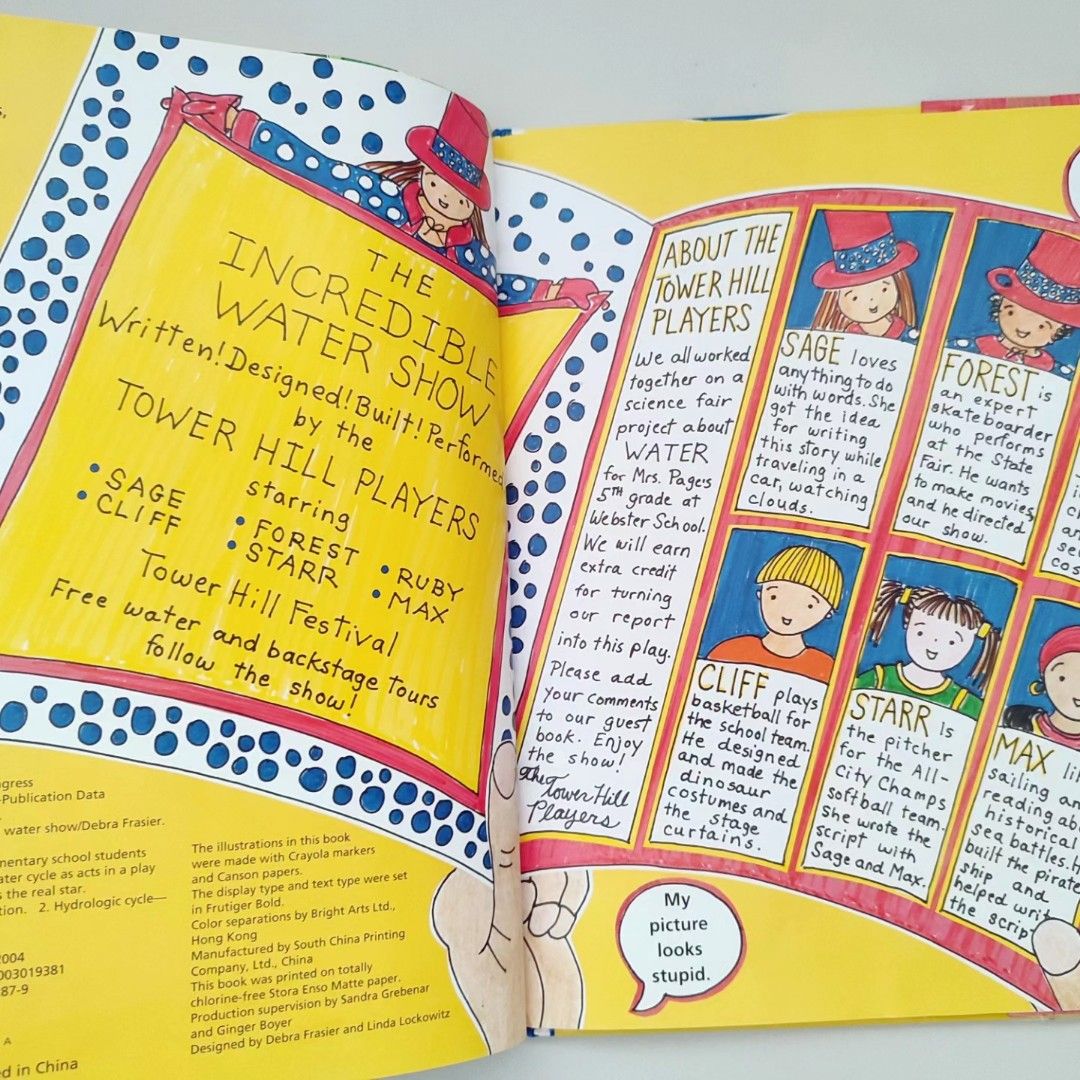 THE
INCREDIBLE
WATER SHOW
Written! Designed! Built! Performed
by the
TOWER HILL PLAYERS
starring
• SAGE
• CLIFF
• FOREST
• STARR
• RUBY
• MAX
Tower Hill Festival
Free water and backstage Tours
follow the show!
-Publication Data
water show/Debra Frasier.
school students
water cycle as acts in a play
the real star.
2. Hydrologic cycle—
2004
003019381
87-9
A
in China
The illustrations in this book
were made with Crayola markers
and Canson papers.
The display type and text type were set
in Frutiger Bold.
Color separations by Bright Arts Ltd.,
Hong Kong
Manufactured by South China Printing
Company, Ltd., China
This book was printed on totally
chlorine-free Stora Enso Matte paper.
Production supervision by Sandra Grebenar
and Ginger Boyer
Designed by Debra Frasier and Linda Lockowitz
ABOUT THE
TOWER HILL
PLAYERS
We all worked
together on a
science fair
project about
WATER
for Mrs. Page's
5TH grade at
Webster School.
We will earn
extra credit
for turning
our report
into this play.
Please add
your comments
to our guest
book. Enjoy
the show!
The Tower Hill
Players
SAGE loves
anything to do
with words. She
got the idea
for writing
this story while
traveling in a
car, watching
clouds.
FOREST is
an expert
skateboarder
who performs
at the State
Fair. He wants
to make movies,
and he directed
our show.
CLIFF plays
basketball for
the school team.
He designed
and made the
dinosaur
costumes and
the stage
curtains.
STARR is
the pitcher
for the All-
City Champs
softball team.
She wrote the
script with
Sage and Max.
MAX
sailing
reading
historical
sea battles.
built the pirate
ship and
helped
the
My
picture
looks
stupid.